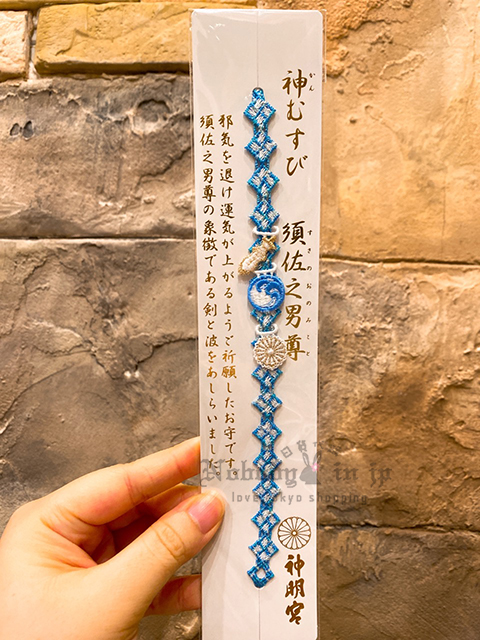 神むすび
かん
須佐之男尊
すさのおのみこと
邪気を退け運気が上がるようご祈願したお守です。
須佐之男尊の象徴である剣と波をあしらいました。
神明宮
日貨
Nobody in jp
love tokyo shopping